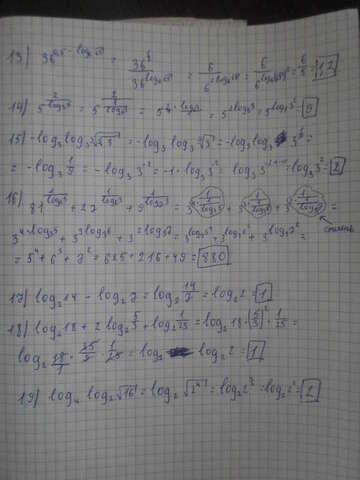 13) 36^(0,5 - log₆√5) = 36^(1/2) / 36^(log₆√5) = 6 / 6^(2log₆√5) = 6 / 6^(log₆5) = 6/5 = 1,2
14) 5^(2/log₃5) = 5^(4·log₅) = 5^(2log₅3) = 5^(log₅3²) = 9
15) -log₃ log₃ ∛∛3 = -log₃ log₃ ⁹√3 = -log₃ log₃ 3^(1/9) =
= -log₃ 1/9 = -log₃ 3^(-2) = -1·log₃ 3^(-2) = log₃ 3^(-2·(-1)) = log₃ 3² = 2
16) 81^(1/log₅3) + 27^(1/log₆3) + 9^(1/log₇3) = 3^(4·1/log₅3) + 3^(3·1/log₆3) + 3^(2·1/log₇3) =
степень
3^(4·log₃5) + 3^(3log₃6) + 3^(2log₃7) = 3^(log₃5⁴) + 3^(log₃6³) + 3^(log₃7²) =
= 5⁴ + 6³ + 7² = 625 + 216 + 49 = 880
17) log₂14 - log₂7 = log₂ 14/7 = log₂2 = 1
18) log₂18 + 2log₂ 5/3 + log₂ 1/25 = log₂ 18·(5/3)²·1/25 =
log₂ 18/1 · 25/9 · 1/25 = log₂2 = 1
19) log₄ log₂ √16